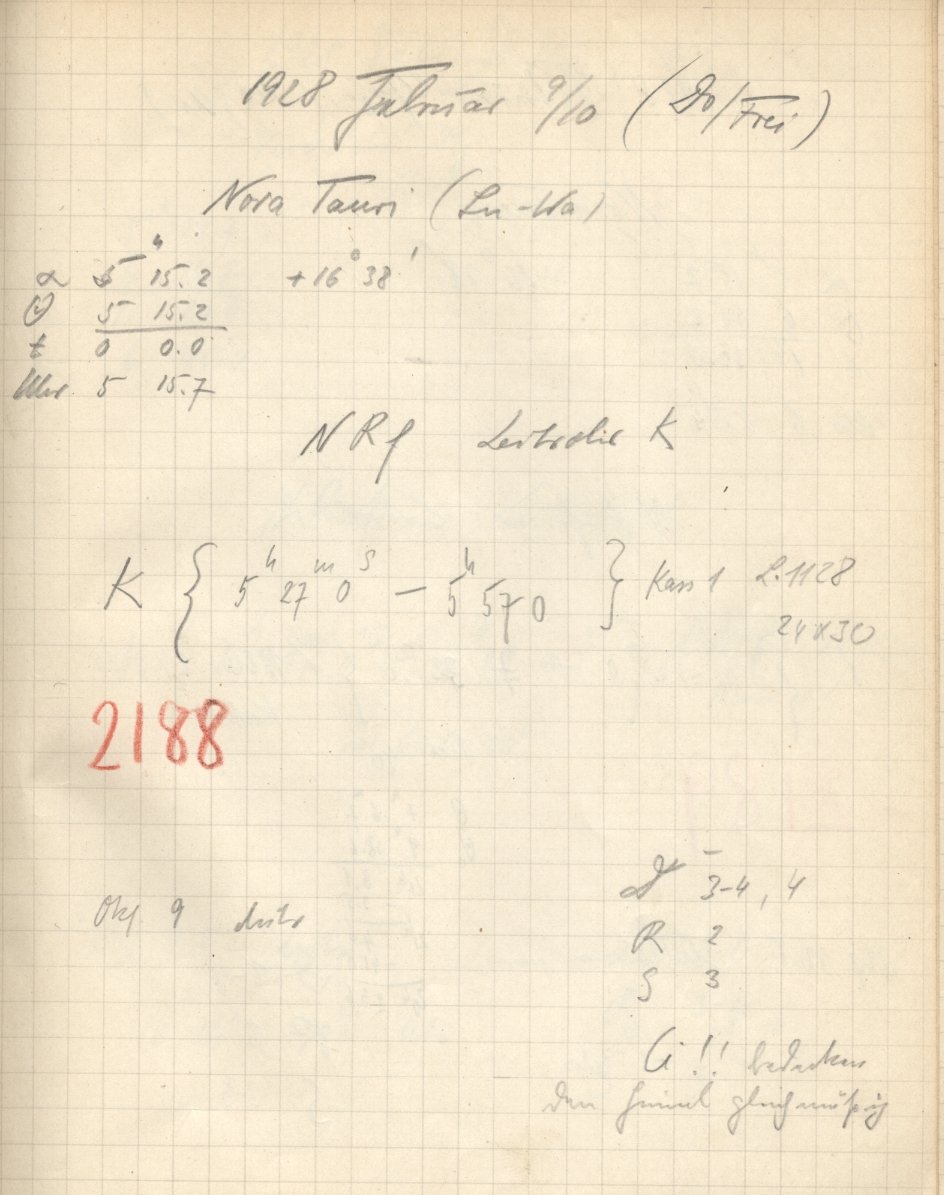 1928 Februar 9/10 (Do/Frei)
Nova Tauri (Lu-Wa)
α 5ʰ 15.2 +16° 38'
Θ 5 15.2
t 0 0.0
Uhr 5 15.7
NRf K
K { 5ʰ 27ᵐ 0ˢ – 5ʰ 57 0 } Kass 1 L.1128
24x30
2188
Okf 9
D 3-4, 4
R 2
S 3
Ci!! bedecken
den Himmel gleichmäßig